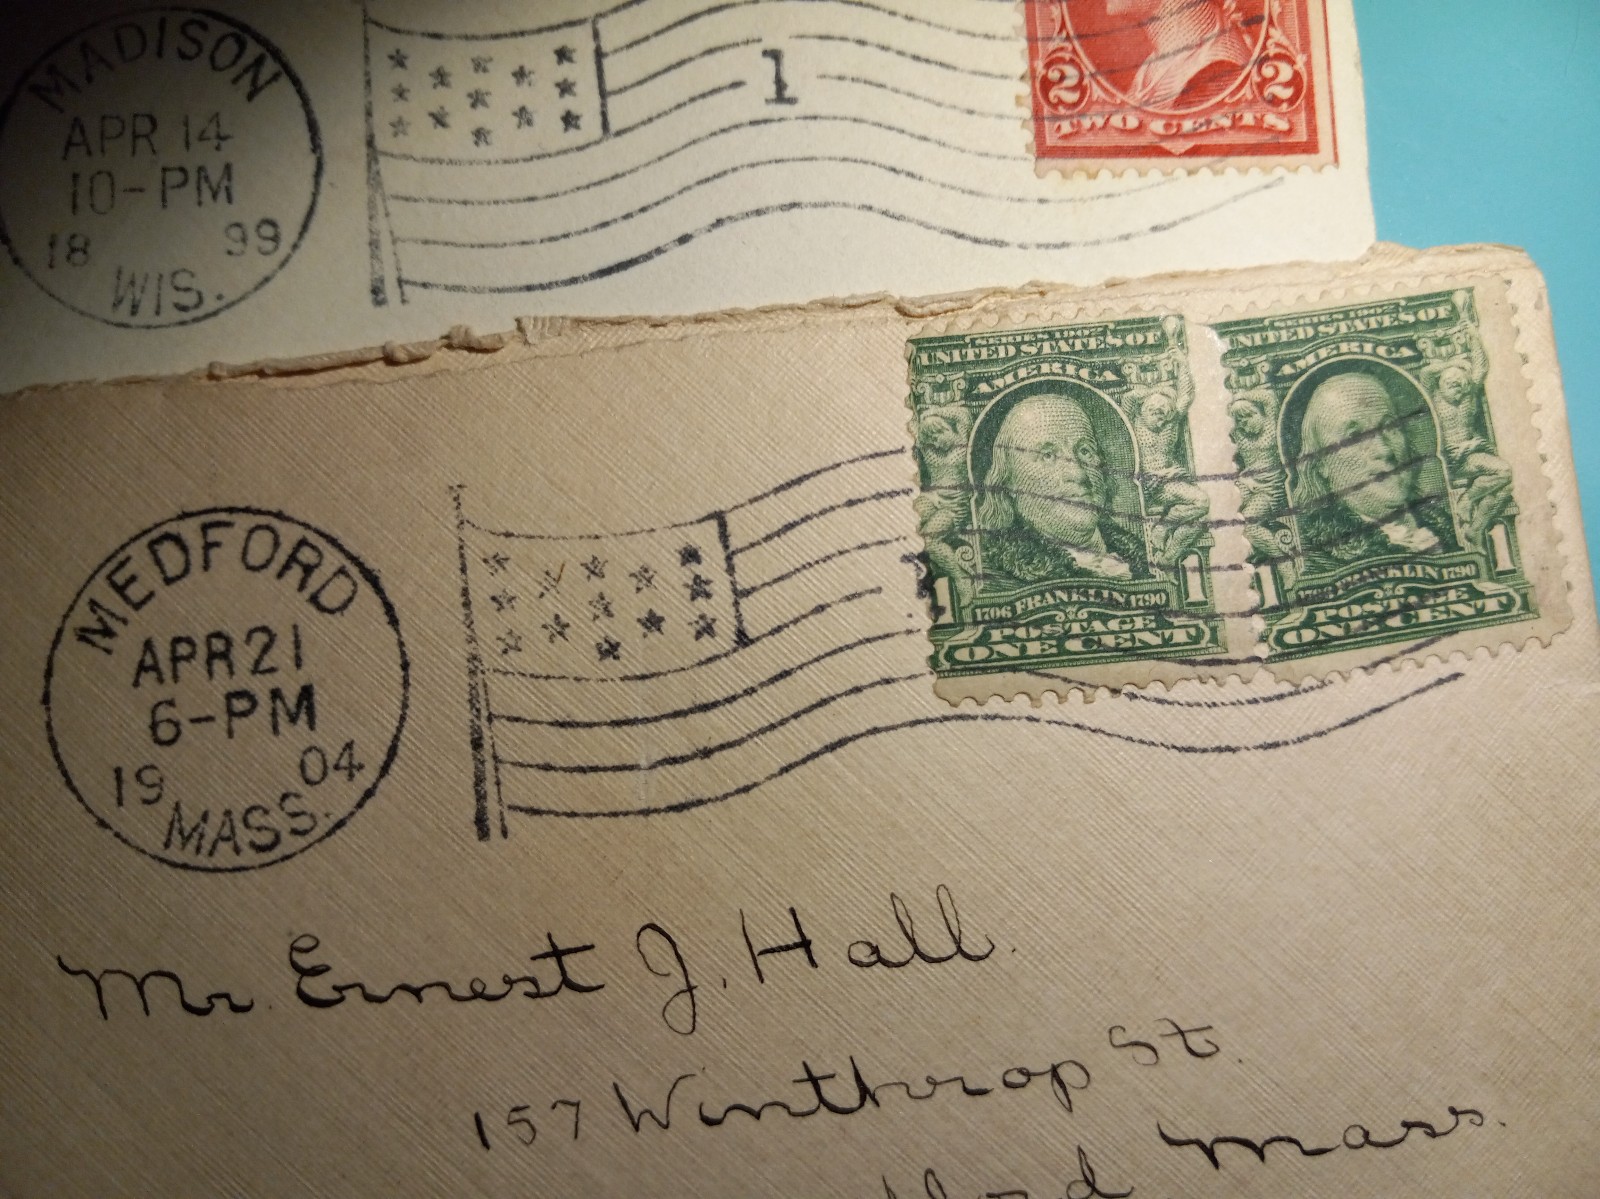 MADISON
APR 14
10-PM
18 99
WIS.
1
2 2
TWO CENTS
MEDFORD
APR 21
6-PM
19 04
MASS.
SERIES 1902
UNITED STATES OF
AMERICA
1 1
1706 FRANKLIN 1790
POSTAGE
ONE CENT
SERIES 1902
UNITED STATES OF
AMERICA
1 1
1706 FRANKLIN 1790
POSTAGE
ONE CENT
Mr. Ernest J. Hall.
157 Winthrop St.
Mass.